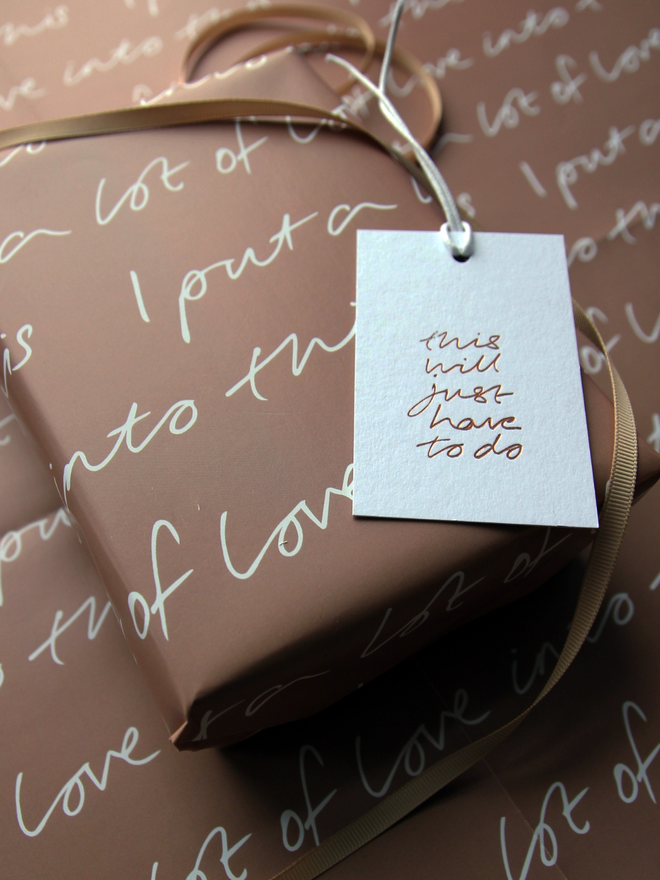 love into t
lot of love
a lot of
I put a
I put a
into thi
of love
this
will
just
have
to do
a lot of
love
of love into
lot of
lot of